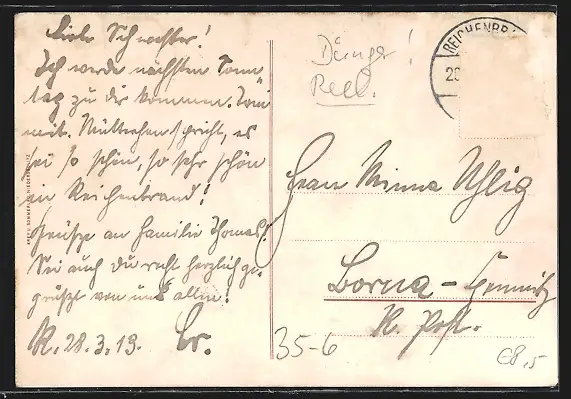 Liebe Schwester!
Ich werde nächsten Sonn-
tag zu dir kommen. Toni
mit. Mütterchen spricht, es
sei so schön, so sehr schön
in Reichenbrand!
Grüße an Familie Thomas!
Sei auch Du recht herzlich ge-
grüßt von uns allen!
R. 28.3.13. Br.
Dünger!
Reell.
REICHENBRA
Frau Minna Uhlig
Borna-Chemnitz
H. Post.
35-6